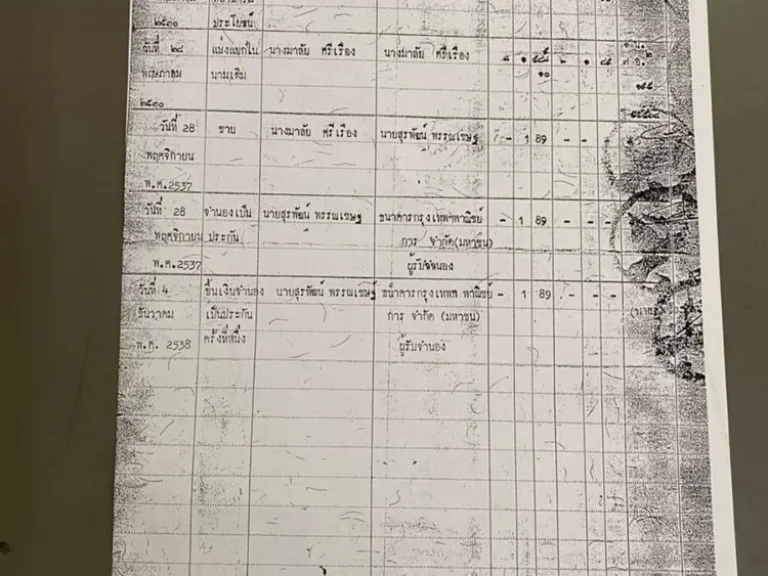 ๒๕๓๐ ประโยชน์
วันที่ ๒๘ แบ่งแยกใน นางมาลัย ศรีเรือง นางมาลัย ศรีเรือง
พฤษภาคม นามเดิม
๒๕๓๐
วันที่ 28 ขาย นางมาลัย ศรีเรือง นายสุรพัฒน์ พรรณเชษฐ - 1 89 - - -
พฤศจิกายน
พ.ศ.2537
วันที่ 28 จำนองเป็น นายสุรพัฒน์ พรรณเชษฐ ธนาคารกรุงเทพฯพาณิชย์ - 1 89 - - -
พฤศจิกายน ประกัน การ จำกัด(มหาชน)
พ.ศ.2537 ผู้รับจำนอง
วันที่ 4 ขึ้นเงินจำนอง นายสุรพัฒน์ พรรณเชษฐ์ ธนาคารกรุงเทพฯ พาณิชย์ - 1 89 - - -
ธันวาคม เป็นประกัน การ จำกัด (มหาชน)
พ.ศ. 2538 ครั้งที่หนึ่ง ผู้รับจำนอง